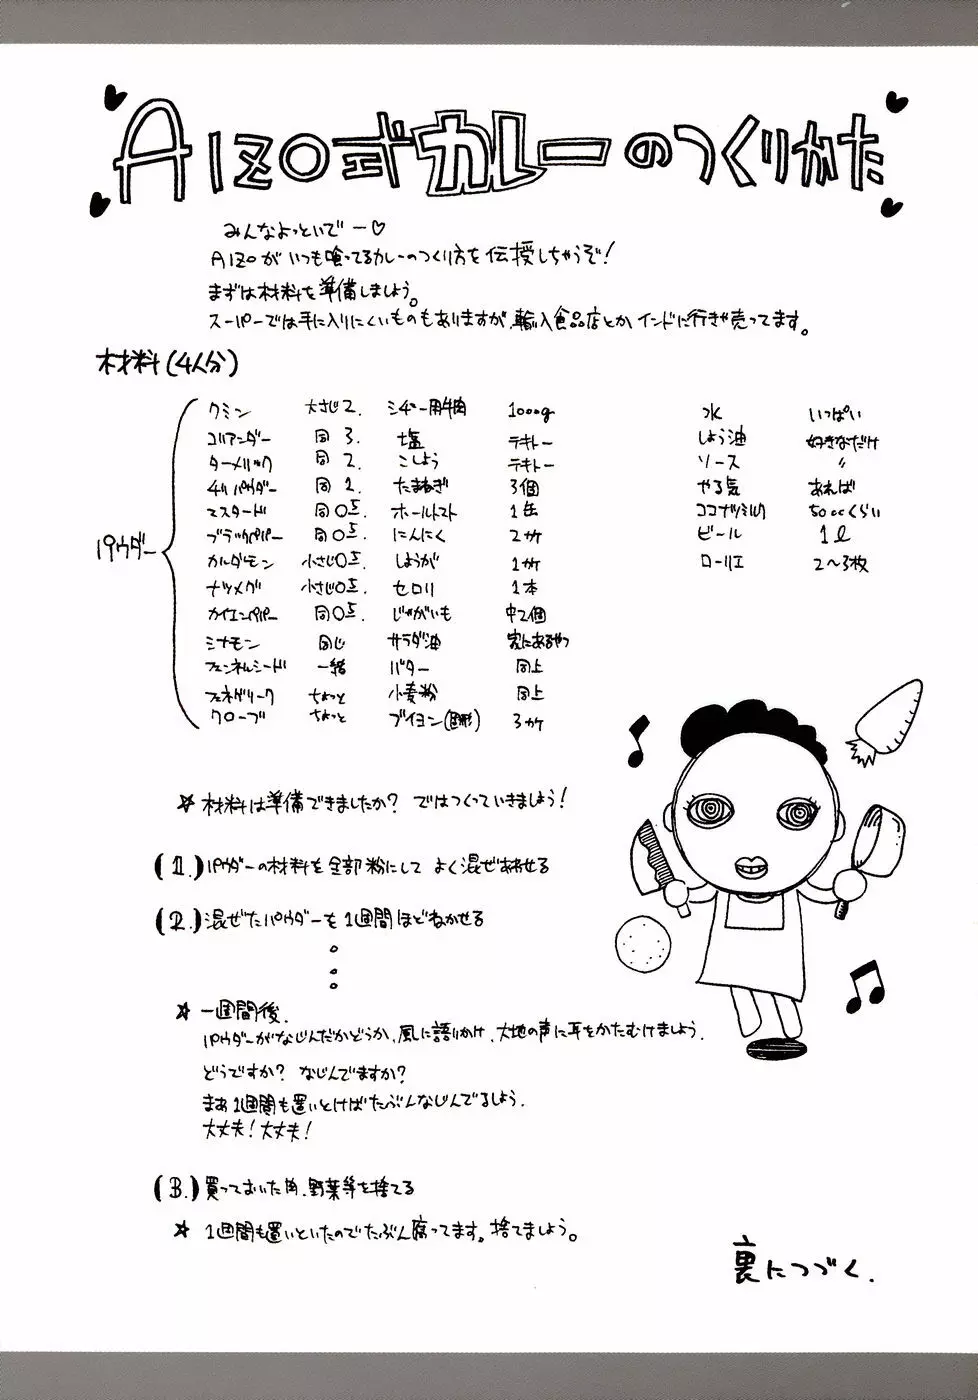 AIZO式カレーのつくりかた
みんなよっといでー♡
AIZOがいつも喰ってるカレーのつくり方を伝授しちゃうぞ!
まずは材料を準備しましょう。
スーパーでは手に入りにくいものもありますが、輸入食品店とかインドに行きゃ売ってます。
材料(4人分)
パウダー
クミン 大さじ2.
コリアンダー 同 3.
ターメリック 同 2.
チリパウダー 同 1.
マスタード 同0.5.
ブラックペパー 同0.5.
カルダモン 小さじ0.5.
ナツメグ 小さじ0.5.
カイエンペパー 同0.5.
シナモン 同じ
フェンネルシード 一緒
フェネグリーク ちょっと
クローブ ちょっと
シチュー用牛肉 1000g
塩 テキトー
こしょう テキトー
たまねぎ 3個
ホールトマト 1缶
にんにく 2ヶ
しょうが 1ヶ
セロリ 1本
じゃがいも 中2個
サラダ油 家にあるやつ
バター 同上
小麦粉 同上
ブイヨン(固形) 3ヶ
水 いっぱい
しょう油 好きなだけ
ソース 〃
やる気 あれば
ココナツミルク 500ccくらい
ビール 1ℓ
ローリエ 2〜3枚
☆ 材料は準備できましたか? ではつくっていきましょう!
(1.) パウダーの材料を全部粉にして よく混ぜあわせる
(2.) 混ぜたパウダーを1週間ほどねかせる
。
。
。
☆ 一週間後.
パウダーがなじんだかどうか、風に語りかけ、大地の声に耳をかたむけましょう.
どうですか? なじんでますか?
まぁ1週間も置いとけばたぶんなじんでるしょう.
大丈夫! 大丈夫!
(3.) 買っておいた肉、野菜等を捨てる
☆ 1週間も置いといたのでたぶん腐ってます。捨てましょう。
裏につづく.